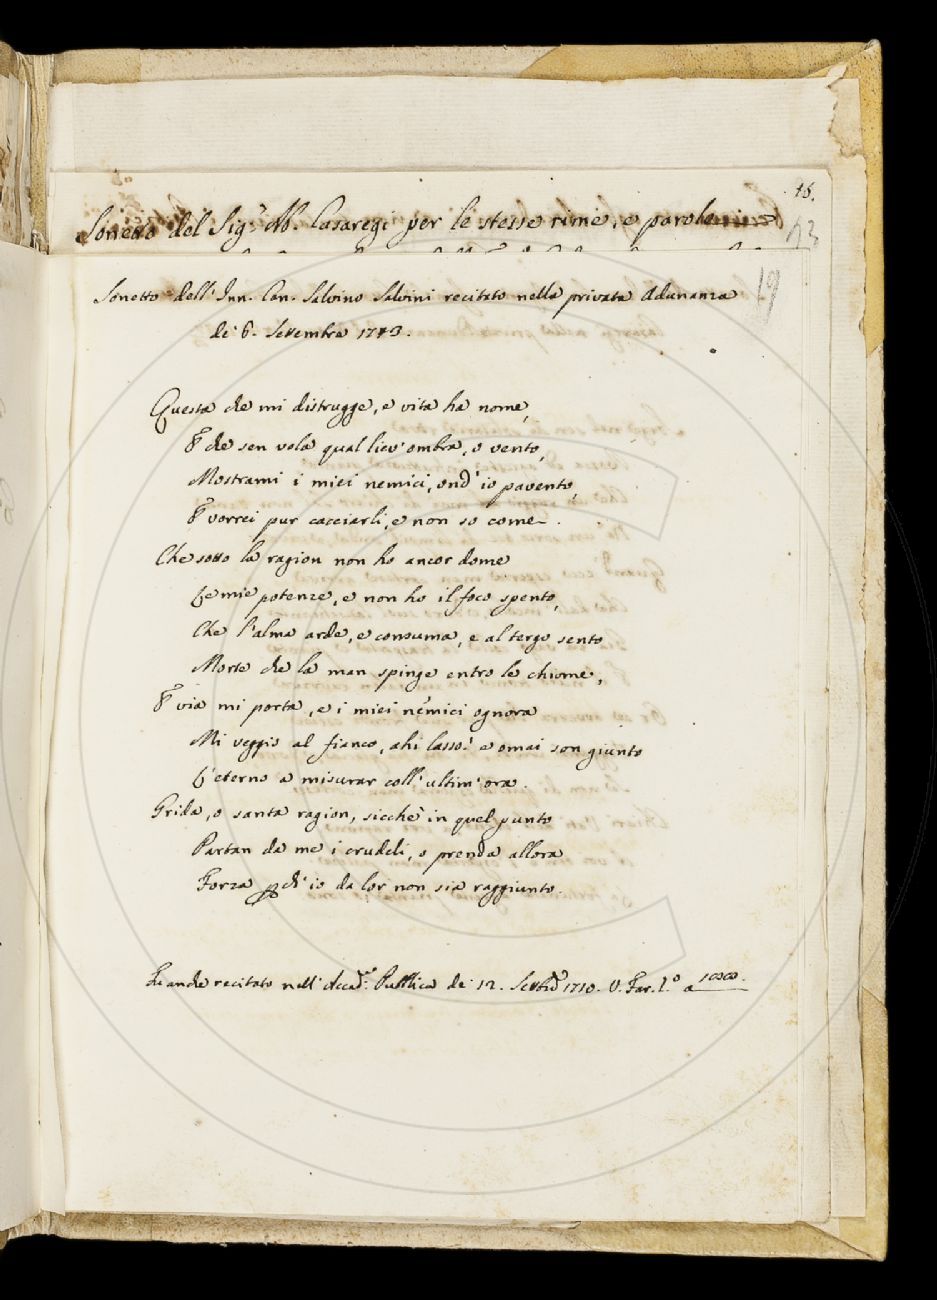 16.
Sonetto del Sig.r Ab. Casaregi per le stesse rime, e parole
13
19
Sonetto dell' Inn. Can. Salvino Salvini recitato nella privata Adunanza
de' 6. Settembre 1713.
Questa che mi distrugge, e vita ha nome,
E che sen vola qual liev' ombra, o vento,
Mostrami i miei nemici, ond' io pavento,
E vorrei pur cacciarli, e non so come.
Che sotto la ragion non ho ancor dome
Le mie potenze, e non ho il foco spento,
Che l'alma arde, e consuma, e al tergo sento
Morte che la man spinge entro le chiome,
E via mi porta, e i miei nemici ognora
Mi veggio al fianco, ahi lasso! e omai son giunto
L'eterno a misurar coll' ultim' ora.
Grida, o santa ragion, sicchè in quel punto
Partan da me i crudeli, o prenda allora
Forza ch' io da lor non sia raggiunto.
Fu anche recitato nell' Accad.a Pubblica de' 12. Settbre 1710. V. Far. l.o a